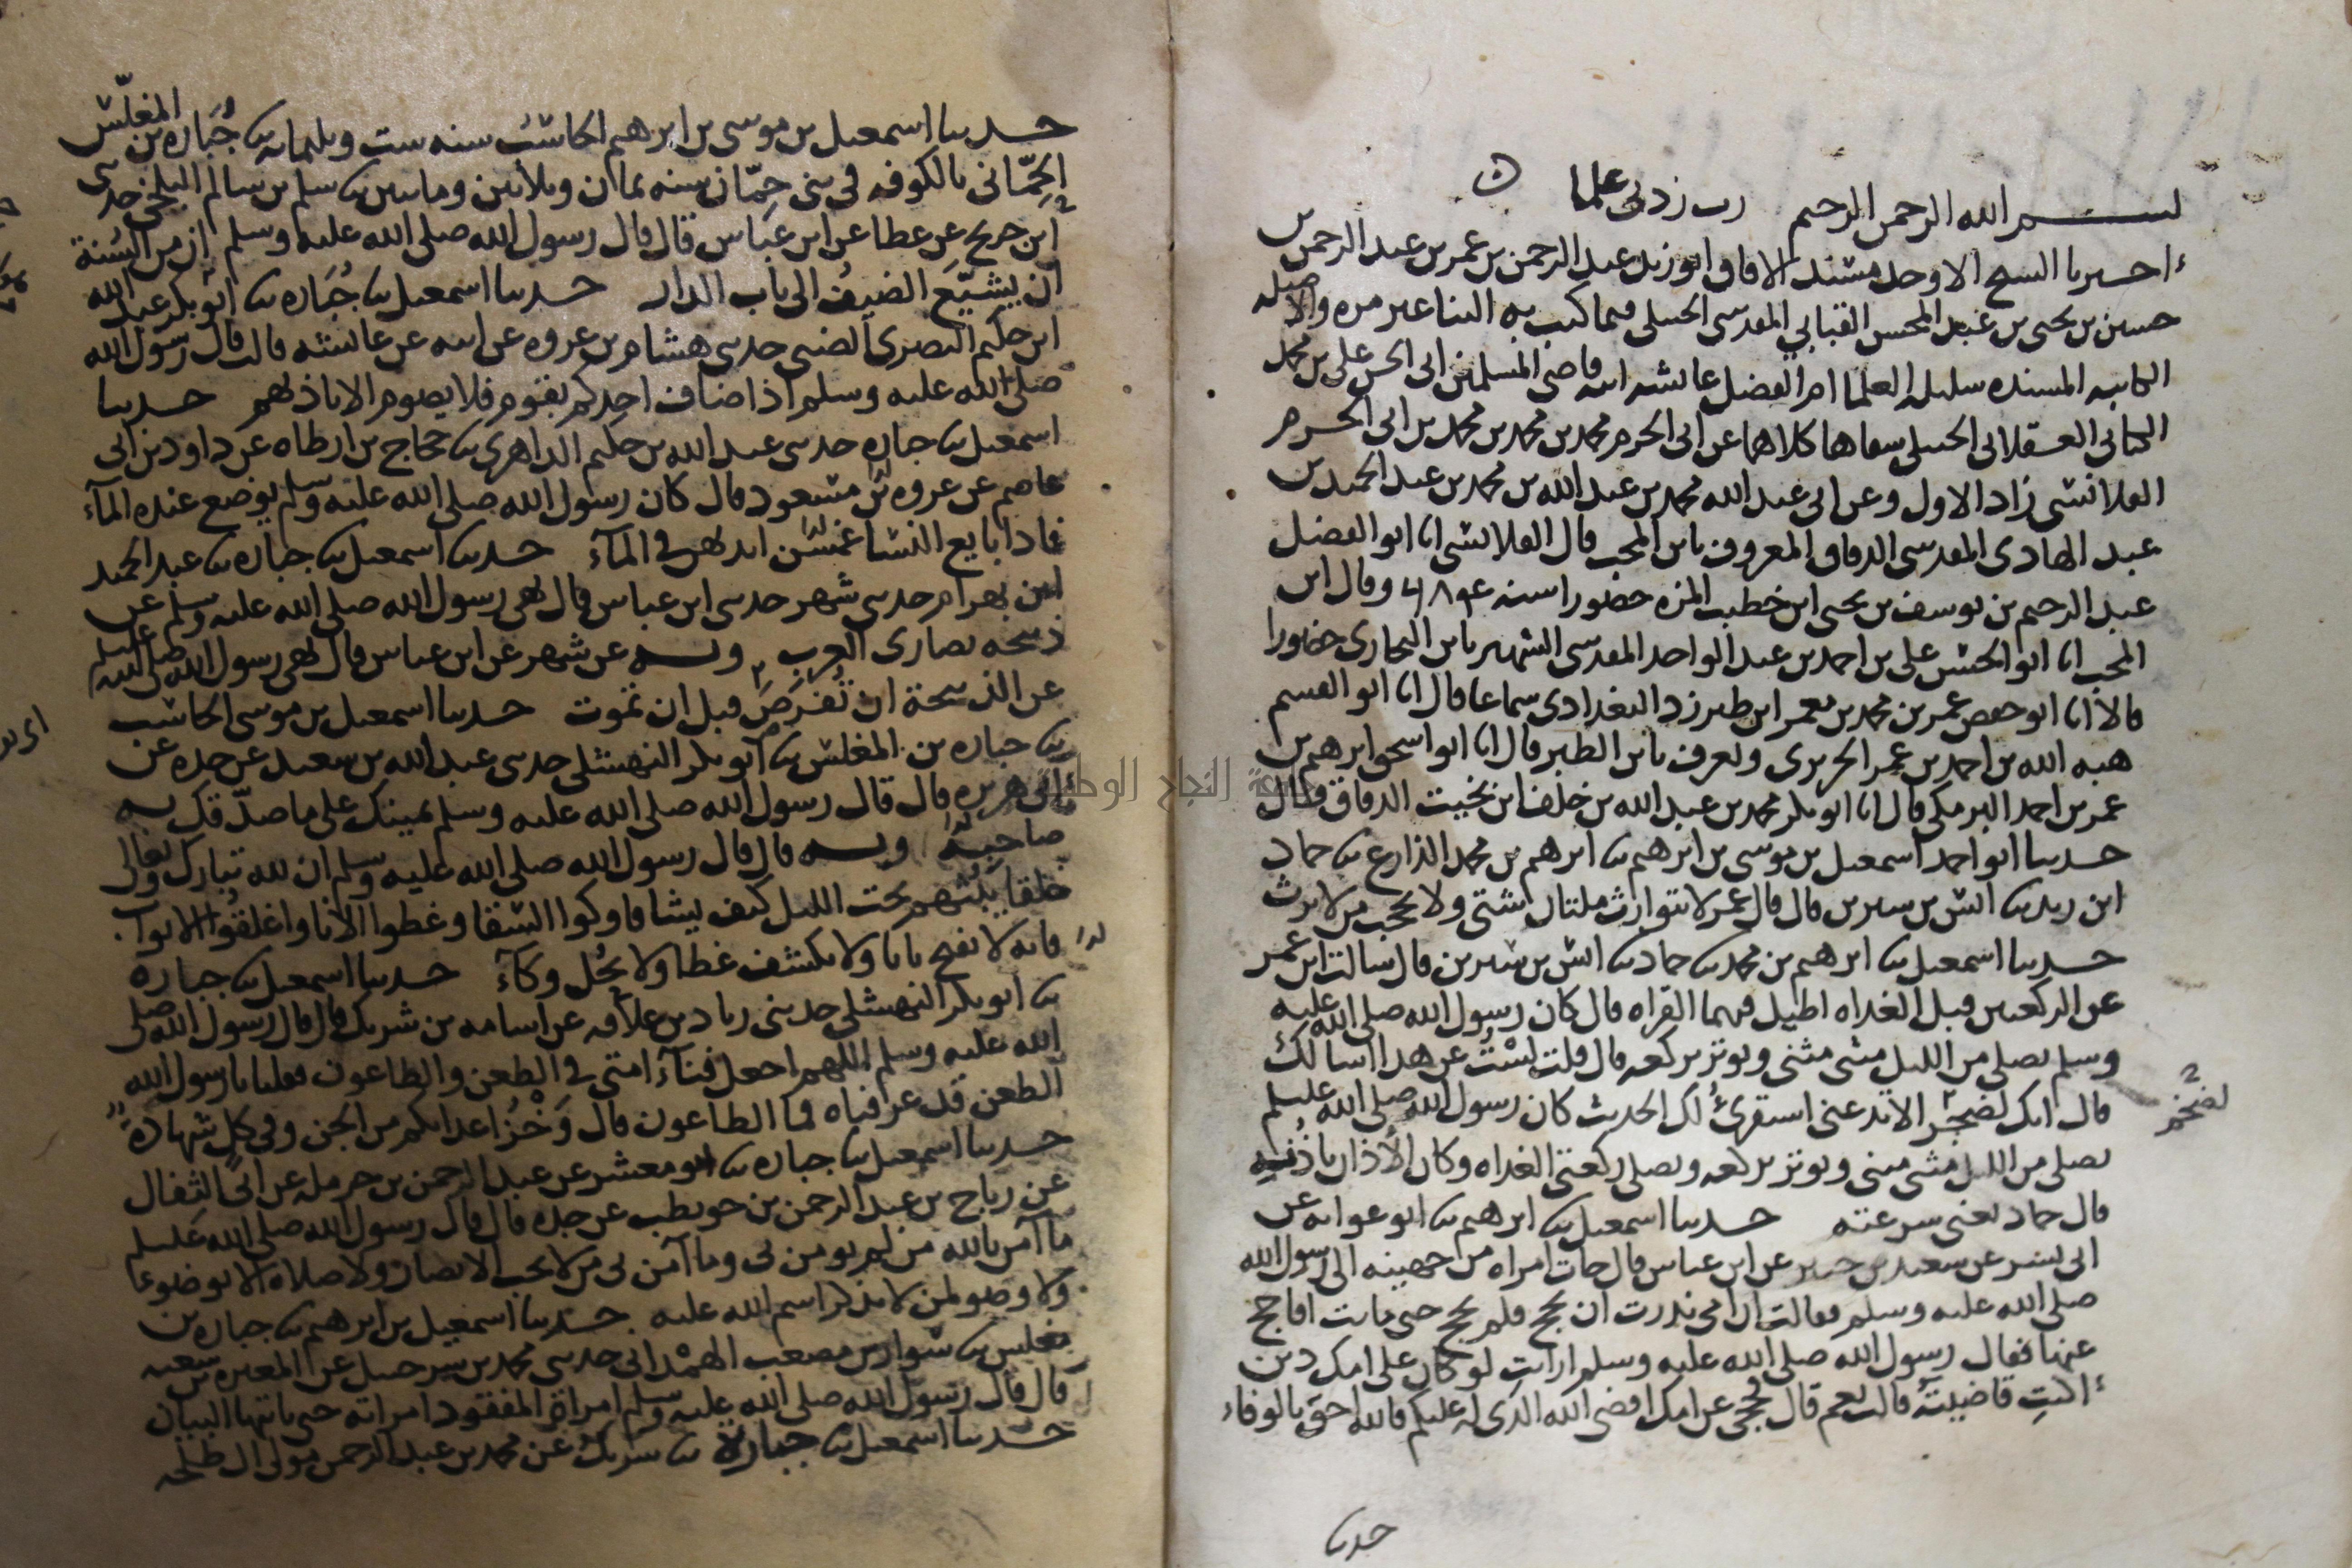 بسم الله الرحمن الرحيم رب زدني علما
اخبرنا الشيخ الاوحد مسند الافاق ابو زيد عبد الرحمن بن عمر بن عبد الرحمن بن
حسين بن يحيى بن عبد المحسن القبابي المقدسي الحنبلي فيما كتب به الينا غير مره والاصيله
الكاتبه المسنده سليله العلما ام الفضل عائشه ابنه قاضي المسلمين ابي الحسن علي بن محمد
الكناني العسقلاني الحنبلي سماها كلاهما عن ابي الحرم محمد بن محمد بن محمد بن ابي الحرم
القلانسي زاد الاول وعن ابي عبد الله محمد بن عبد الله بن محمد بن عبد الحميد بن
عبد الهادي المقدسي الدقاق المعروف بابن المحب قال القلانسي انا ابو الفضل
عبد الرحيم بن يوسف بن يحيى ابن خطيب المزه حضورا سنه وقال ابن
المحب انا ابو الحسن علي بن احمد بن عبد الواحد المقدسي الشهير بابن البخاري حضورا
قالا انا ابو حفص عمر بن محمد بن معمر ابن طبرزد البغدادي سماعا قال انا ابو القسم
هبه الله بن احمد بن عمر الحريري ويعرف بابن الطبر قال انا ابو اسحق ابرهيم بن
عمر بن احمد البرمكي قال انا ابو بكر محمد بن عبد الله بن خلف ابن بخيت الدقاق قال
حدثنا ابو احمد اسمعيل بن موسى بن ابرهيم ثنا ابرهيم بن محمد الذارع ثنا حماد
ابن زيد ثنا انس بن سيرين قال قال عمر لا يتوارث ملتان شتى ولا يحجب من لا يرث
حدثنا اسمعيل ثنا ابرهيم بن محمد ثنا حماد ثنا انس بن سيرين قال سالت ابن عمر
عن الركعتين قبل الغداه اطيل فيهما القراه قال كان رسول الله صلى الله عليه
وسلم يصلي من الليل مثنى مثنى ويوتر بركعه قال قلت لست عن هذا اسالك
قال انك لضخم الا تدعني استقرئ لك الحديث كان رسول الله صلى الله عليه وسلم
لضخم
يصلي من الليل مثنى مثنى ويوتر بركعه ويصلي ركعتي الغداه وكان الاذان باذنيه
قال حماد يعني سرعته حدثنا اسمعيل ثنا ابرهيم ثنا ابو عوانه عن
ابي بشر عن سعيد بن جبير عن ابن عباس قال جات امراه من جهينه الى رسول الله
صلى الله عليه وسلم فقالت ان امي نذرت ان تحج فلم تحج حتى ماتت افاحج
عنها فقال رسول الله صلى الله عليه وسلم ارايت لو كان على امك دين
اكنت قاضيته قالت نعم قال فحجي عن امك اقضي الله الذي له عليكم فالله احق بالوفاء
حدثنا
حدثنا اسمعيل بن موسى بن ابرهيم الحاسب سنه ست وثلثمائه ثنا جباره بن المغلس
الحماني بالكوفه في بني حمان سنه ثمان وثلاثين ومايتين ثنا سلم بن سالم البلخي حدثني
ابن جريج عن عطا عن ابن عباس قال قال رسول الله صلى الله عليه وسلم ان من السنة
ان يشيع الضيف الى باب الدار حدثنا اسمعيل ثنا جباره ثنا ابو بكر عبد الله
ابن حكيم البصري الضبي حدثني هشام بن عروه عن ابيه عن عائشه قالت قال رسول الله
صلى الله عليه وسلم اذا ضاف احدكم بقوم فلا يصوم الا باذنهم حدثنا
اسمعيل ثنا جباره حدثني عبد الله بن حكيم الداهري ثنا حجاج بن ارطاه عن داود بن ابي
عاصم عن عروه بن مسعود قال كان رسول الله صلى الله عليه وسلم يوضع عنده المآء
فاذا بايع النسا غمسن ايديهن في المآء حدثنا اسمعيل ثنا جباره ثنا عبد الحميد
ابن بهرام حدثني شهر حدثني ابن عباس قال نهى رسول الله صلى الله عليه وسلم عن
ذبيحه نصارى العرب وبه عن شهر عن ابن عباس قال نهى رسول الله صلى الله عليه وسلم
عن الذبيحة ان تفرص قبل ان تموت حدثنا اسمعيل بن موسى الحاسب
ثنا جباره بن المغلس ثنا ابو بكر النهشلي حدثني عبد الله بن سعيد عن جده عن
ابي هريره قال قال رسول الله صلى الله عليه وسلم يمينك على ما صدقك به
صاحبك وبه قال قال رسول الله صلى الله عليه وسلم ان لله تبارك وتعالى
خلقا يبثهم تحت الليل كيف يشا فاوكوا السقا وغطوا الانا واغلقوا الابواب
فانه لا يفتح بابا ولا يكشف غطا ولا يحل وكآء حدثنا اسمعيل ثنا جباره
ثنا ابو بكر النهشلي حدثني زياد بن علاقه عن اسامه بن شريك قال قال رسول الله صلى
الله عليه وسلم اللهم اجعل فنآء امتي في الطعن والطاعون فقلنا يا رسول الله
الطعن قد عرفناه فما الطاعون قال وخز اعدائكم من الجن وفي كل شهادة
حدثنا اسمعيل ثنا جباره ثنا ابو معشر عن عبد الرحمن بن حرمله عن ابي الثفال
عن رباح بن عبد الرحمن بن حويطب عن جده قال قال رسول الله صلى الله عليه وسلم
ما آمن بالله من لم يومن بي وما آمن بي من لا يحب الانصار ولا صلاه الا بوضو
ولا وضو لمن لا يذكر اسم الله عليه حدثنا اسمعيل بن ابرهيم ثنا جباره بن
مغلس ثنا سوار بن مصعب الهمداني حدثني محمد بن شرحبيل عن المغيره بن شعبه
قال قال رسول الله صلى الله عليه وسلم امراة المفقود امراته حتى ياتيها البيان
حدثنا اسمعيل ثنا جبارة ثنا شريك عن محمد بن عبد الرحمن مولى ال طلحه
جامعة النجاح الوطنية